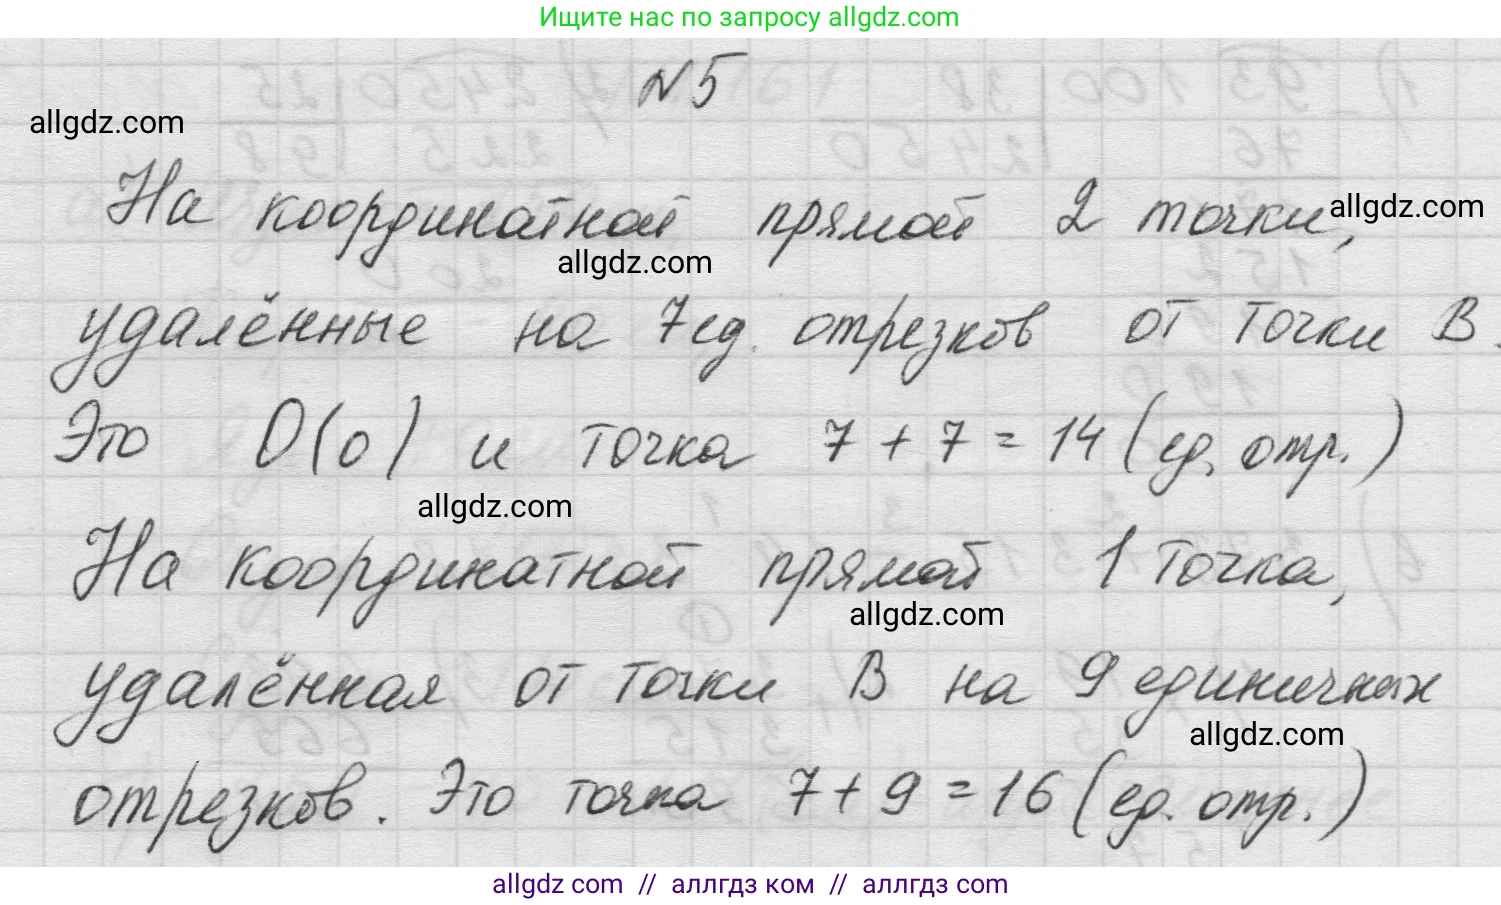 Ищите нас по запросу allgdz.com
N5
allgdz.com
На координатной прямой 2 точки,
allgdz.com
allgdz.com
удалённые на 7 ед. отрезков от точки В.
Это O(0) и точка 7 + 7 = 14 (ед. отр.)
allgdz.com
На координатной прямой 1 точка,
allgdz.com
удалённая от точки В на 9 единичных
allgdz.com
отрезков. Это точка 7 + 9 = 16 (ед. отр.)
allgdz com // аллгдз ком // аллгдз com